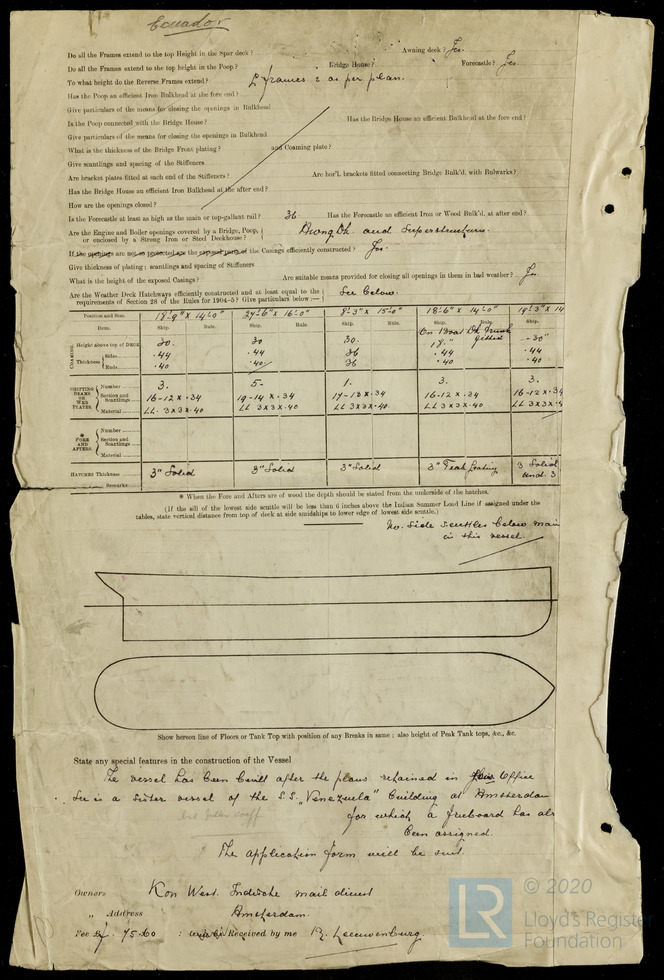 Ecuador
Do all the Frames extend to the top Height in the Spar deck? Awning deck? Yes.
Do all the Frames extend to the top height in the Poop? Bridge House? Forecastle? Yes.
To what height do the Reverse Frames extend? L frames as per plan.
Has the Poop an efficient Iron Bulkhead at the fore end?
Give particulars of the means for closing the openings in Bulkhead
Is the Poop connected with the Bridge House? Has the Bridge House an efficient Bulkhead at the fore end?
Give particulars of the means for closing the openings in Bulkhead
What is the thickness of the Bridge Front plating? and Coaming plate?
Give scantlings and spacing of the Stiffeners
Are bracket plates fitted at each end of the Stiffeners? Are hor'l. brackets fitted connecting Bridge Bulk'd. with Bulwarks?
Has the Bridge House an efficient Iron Bulkhead at the after end?
How are the openings closed?
Is the Forecastle at least as high as the main or top-gallant rail? 36 Has the Forecastle an efficient Iron or Wood Bulk'd. at after end?
Are the Engine and Boiler openings covered by a Bridge, Poop, or enclosed by a Strong Iron or Steel Deckhouse? Awng Dk. and Superstructure.
If the openings are not so protected are the exposed parts of the Casings efficiently constructed? Yes.
Give thickness of plating; scantlings and spacing of Stiffeners
What is the height of the exposed Casings? Are suitable means provided for closing all openings in them in bad weather? Yes.
Are the Weather Deck Hatchways efficiently constructed and at least equal to the requirements of Section 28 of the Rules for 1904-5? Give particulars below:— See below.
Position and Size. 18'-9" x 14'-0" 24'-6" x 16'-0" 8'-3" x 15'-0" 18'-6" x 14'-0" 19'-3" x 14
Item. Ship. Rule. Ship. Rule. Ship. Rule. Ship. Rule. Ship.
On Boat Dk Trunk fitted
COAMING. Height above top of DECK 30. 30 30. 18." 30"
Thickness Sides .44 .44 36 .44 .44
Ends .40 .40 36 .40 .40
SHIFTING BEAMS OR WEB PLATES. Number 3. 5. 1. 3. 3.
Section and Scantlings 16-12 x .34 19-14 x .34 17-13 x .34 16-12 x .34 16-12 x .34
Material LL 3x3x.40 LL 3x3x.40 LL 3x3x.40 LL 3x3x.40 LL 3x3x.4
* FORE AND AFTERS. Number
Section and Scantlings
Material
HATCHES Thickness 3" Solid 3" Solid 3" Solid 3" Teak grating 3 Solid and 3
Remarks
* When the Fore and Afters are of wood the depth should be stated from the underside of the hatches.
(If the sill of the lowest side scuttle will be less than 6 inches above the Indian Summer Load Line if assigned under the
tables, state vertical distance from top of deck at side amidships to lower edge of lowest side scuttle.)
No. Side Scuttles below main
in this vessel.
Show hereon line of Floors or Tank Top with position of any Breaks in same; also height of Peak Tank tops, &c., &c.
State any special features in the construction of the Vessel
The vessel has been built after the plans retained in this Office
She is a sister vessel of the S.S. "Venezuela" building at Amsterdam
for which a freeboard has alr
been assigned.
The application form will be sent.
Owners Kon West. Indische mail dienst
„ Address Amsterdam.
Fee 75.60 : Received by me Leeuwenburg.
LR © 2020
Lloyd's Register
Foundation